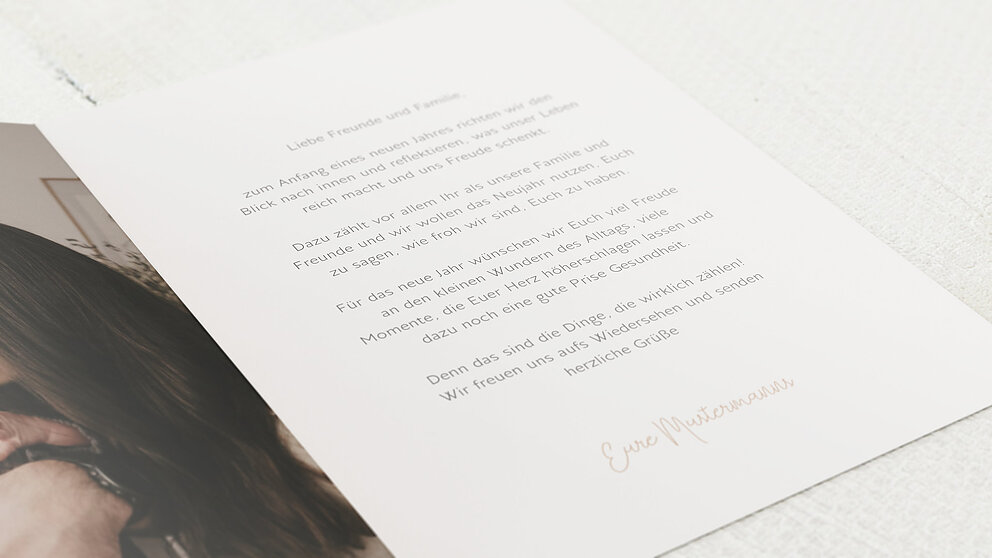 Liebe Freunde und Familie,
zum Anfang eines neuen Jahres richten wir den
Blick nach innen und reflektieren, was unser Leben
reich macht und uns Freude schenkt.
Dazu zählt vor allem Ihr als unsere Familie und
Freunde und wir wollen das Neujahr nutzen, Euch
zu sagen, wie froh wir sind, Euch zu haben.
Für das neue Jahr wünschen wir Euch viel Freude
an den kleinen Wundern des Alltags, viele
Momente, die Euer Herz höherschlagen lassen und
dazu noch eine gute Prise Gesundheit.
Denn das sind die Dinge, die wirklich zählen!
Wir freuen uns aufs Wiedersehen und senden
herzliche Grüße
Eure Mustermanns